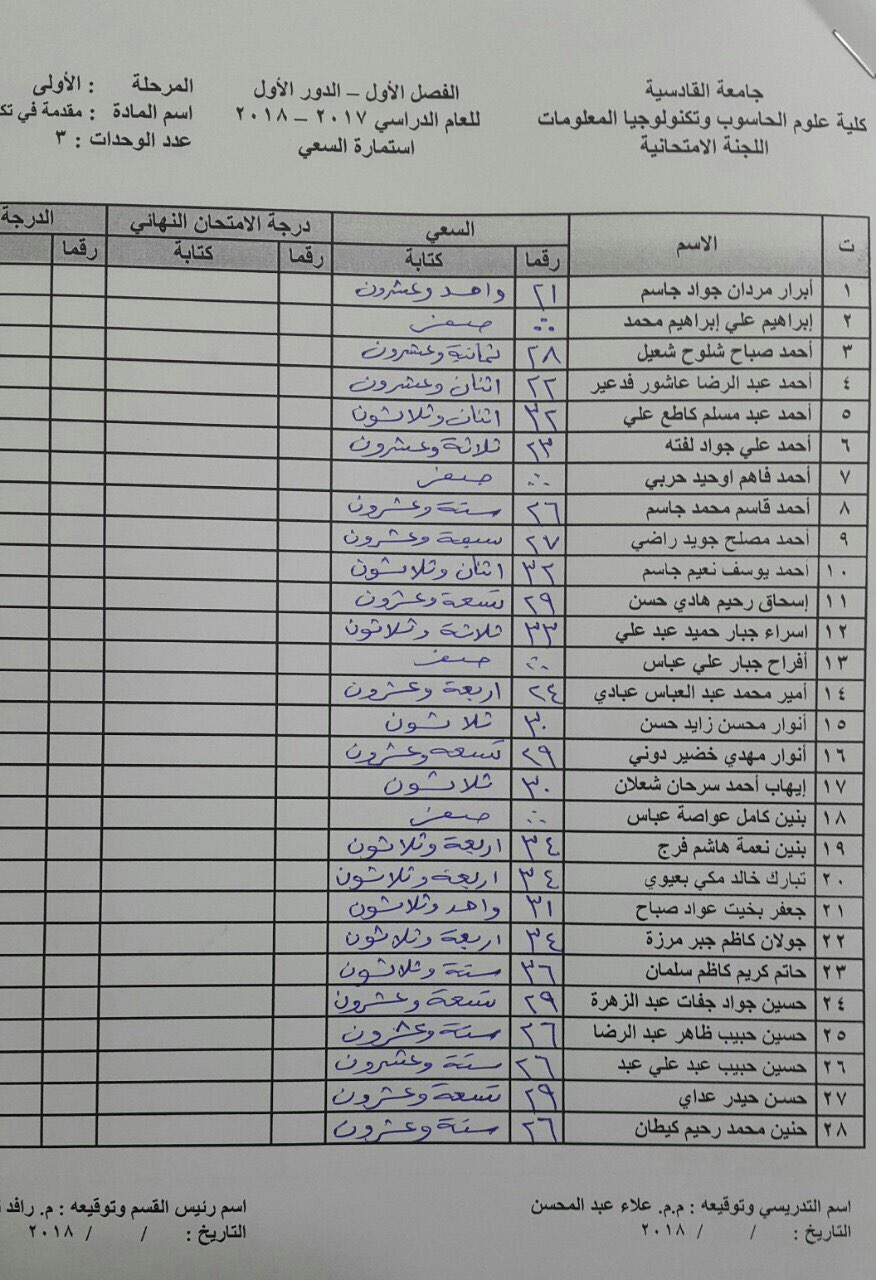 جامعة القادسية
كلية علوم الحاسوب وتكنولوجيا المعلومات
اللجنة الامتحانية
الفصل الأول – الدور الأول
للعام الدراسي ٢٠١٧ – ٢٠١٨
استمارة السعي
المرحلة : الأولى
اسم المادة : مقدمة في
عدد الوحدات : ٣
ت الاسم السعي درجة الامتحان النهائي الدرجة
رقما كتابة رقما كتابة رقما
١ أبرار مردان جواد جاسم ٢١ واحد وعشرون
٢ إبراهيم علي إبراهيم محمد صفر
٣ أحمد صباح شلوح شعيل ٢٨ ثمانية وعشرون
٤ أحمد عبد الرضا عاشور فدعير ٢٢ اثنان وعشرون
٥ أحمد عبد مسلم كاطع علي ٣٢ اثنان وثلاثون
٦ أحمد علي جواد لفته ٢٣ ثلاثة وعشرون
٧ أحمد فاهم اوحيد حربي صفر
٨ أحمد قاسم محمد جاسم ٢٦ ستة وعشرون
٩ أحمد مصلح جويد راضي ٢٧ سبعة وعشرون
١٠ أحمد يوسف نعيم جاسم ٣٢ اثنان وثلاثون
١١ إسحاق رحيم هادي حسن ٢٩ تسعة وعشرون
١٢ اسراء جبار حميد عبد علي ٣٣ ثلاثة وثلاثون
١٣ أفراح جبار علي عباس صفر
١٤ أمير محمد عبد العباس عبادي ٢٤ اربعة وعشرون
١٥ أنوار محسن زايد حسن ٣٠ ثلاثون
١٦ أنوار مهدي خضير دوني ٢٩ تسعة وعشرون
١٧ إيهاب أحمد سرحان شعلان ٣٠ ثلاثون
١٨ بنين كامل عواصة عباس صفر
١٩ بنين نعمة هاشم فرج ٣٤ اربعة وثلاثون
٢٠ تبارك خالد مكي بعيوي ٣٤ اربعة وثلاثون
٢١ جعفر بخيت عواد صباح ٣١ واحد وثلاثون
٢٢ جولان كاظم جبر مرزة ٣٤ اربعة وثلاثون
٢٣ حاتم كريم كاظم سلمان ٣٦ ستة وثلاثون
٢٤ حسين جواد جفات عبد الزهرة ٢٩ تسعة وعشرون
٢٥ حسين حبيب ظاهر عبد الرضا ٢٦ ستة وعشرون
٢٦ حسين حبيب عبد علي عبد ٢٦ ستة وعشرون
٢٧ حسن حيدر عداي ٢٩ تسعة وعشرون
٢٨ حنين محمد رحيم كيطان ٢٦ ستة وعشرون
اسم التدريسي وتوقيعه : م.م. علاء عبد المحسن
التاريخ : / / ٢٠١٨
اسم رئيس القسم وتوقيعه : م. رافد
التاريخ : / / ٢٠١٨